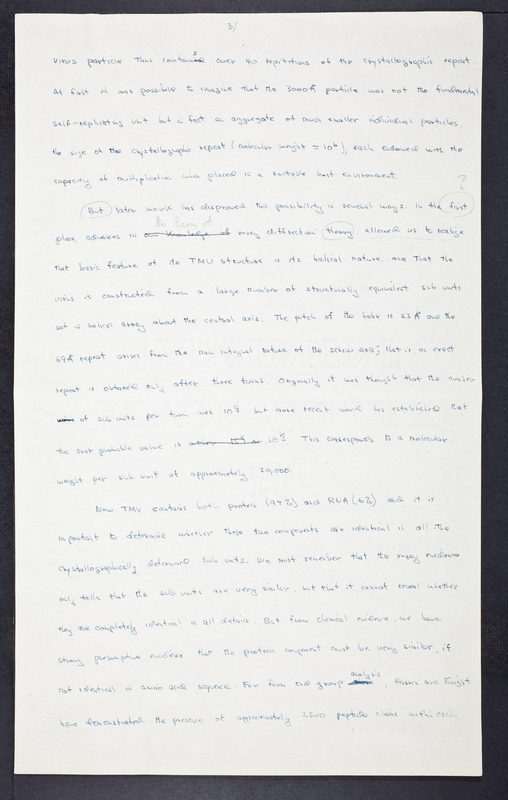 3/
virus particle thus contained over 40 repititions of the crystallographic repeat.
At first it was possible to imagine that the 3000Å particle was not the fundamental
self-replicating unit but in fact an aggregate of much smaller individual particles,
the size of the crystallographic repeat (molecular weight ≈ 10⁶), each endowed with the
capacity of multiplication when placed in a suitable host environment.
?
But later work has disproved this possibility in several ways. In the first
the theory of
place, advances in our knowledge of x-ray diffraction theory allowed us to realize
that basic feature of the TMV structure is its helical nature and that the
virus is constructed from a large number of structurally equivalent sub units
set in helical array about the central axis. The pitch of the helix is 23 Å and the
69Å repeat arises from the non integral nature of the screw axis; that is, an exact
repeat is obtained only after three turns. Originally it was thought that the number
of sub units per turn was but more recent work has established that
the most probable value is either or. This corresponds to a molecular
weight per sub unit of approximately 20,000.
Now TMV contains both protein (94%) and RNA (6%) and it is
important to determine whether these two components are identical in all the
crystallographically determined sub units. We must remember that the x-ray evidence
only tells that the sub units are very similar, but that it cannot reveal whether
they are completely identical in all details. But from chemical evidence, we have
strong presumptive evidence that the protein component must be very similar, if
analysis
not identical in amino acid sequence. For from end group, Harris and Knight
have demonstrated the presence of approximately 2500 peptide chains within each